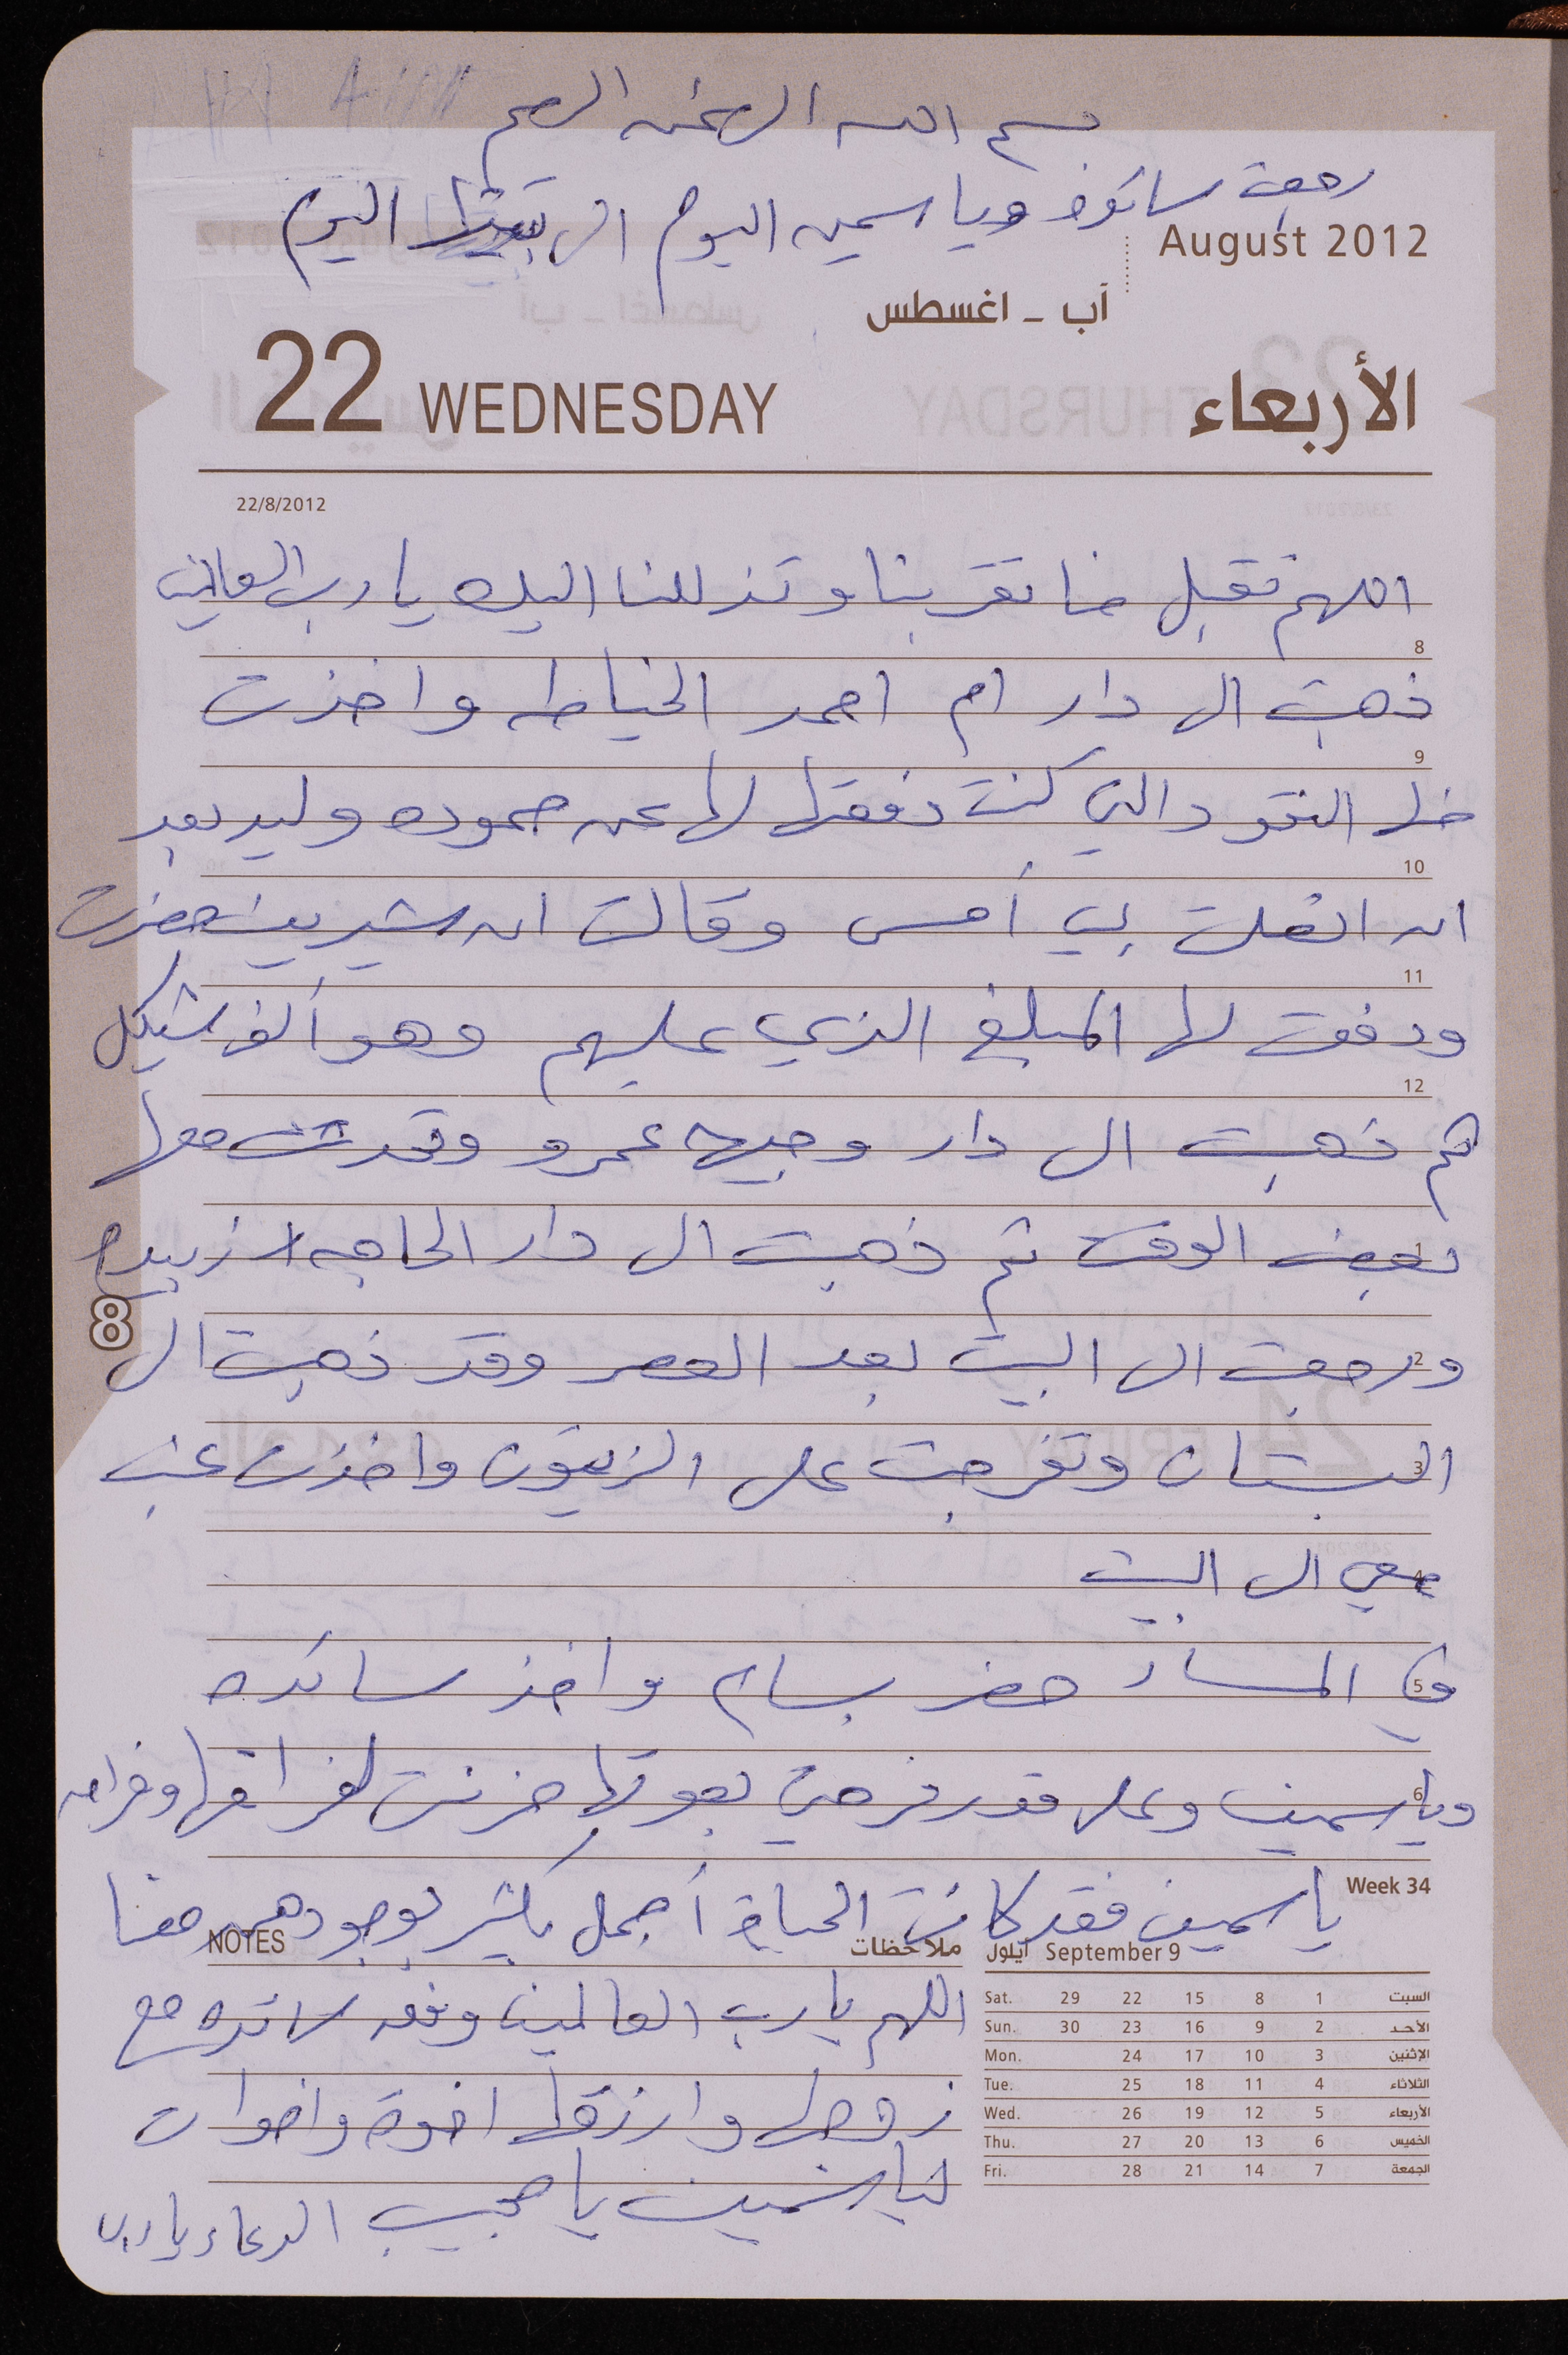 بسم الله الرحمن الرحيم
رجعت سائده وياسمين اليوم الى بيتها اليوم
August 2012
آب - اغسطس
22 WEDNESDAY الأربعاء
22/8/2012
اللهم تقبل منا تقربنا وتذللنا اليك يا رب العالمين
8
ذهبت الى دار ام احمد الخياطه واخذت
9
منها النقود التي كنت دفعتها لها عن حموده وليد بعد
10
ان اتصلت بي أمس وقالت ان شيرين حضرت
11
ودفعت لها المبلغ الذي عليهم وهو ألف شيكل
12
ثم ذهبت الى دار وجيه عمرو وتحدثت معها
1
بعض الوقت ثم ذهبت الى دار الحاجه زبيده
8
2
ورجعت الى البيت بعد العصر وقد ذهبت الى
3
البستان وتفرجت على الزيتون واخذت عنب
4
معي الى البيت
5
في المساء حضر بسام واخذ سائده
6
وياسمين وعلى قدر فرحي بعودتها حزنت لفراقها وفراق
Week 34
ياسمين فقد كانت الحياة أجمل بكثير بوجودهم معنا
NOTES ملاحظات
اللهم يا رب العالمين وفق سائده مع
زوجها وارزقها اخوة واخوات
لياسمين يا مجيب الدعاء يا رب
أيلول September 9
Sat. 29 22 15 8 1 السبت
Sun. 30 23 16 9 2 الأحد
Mon. 24 17 10 3 الإثنين
Tue. 25 18 11 4 الثلاثاء
Wed. 26 19 12 5 الأربعاء
Thu. 27 20 13 6 الخميس
Fri. 28 21 14 7 الجمعة